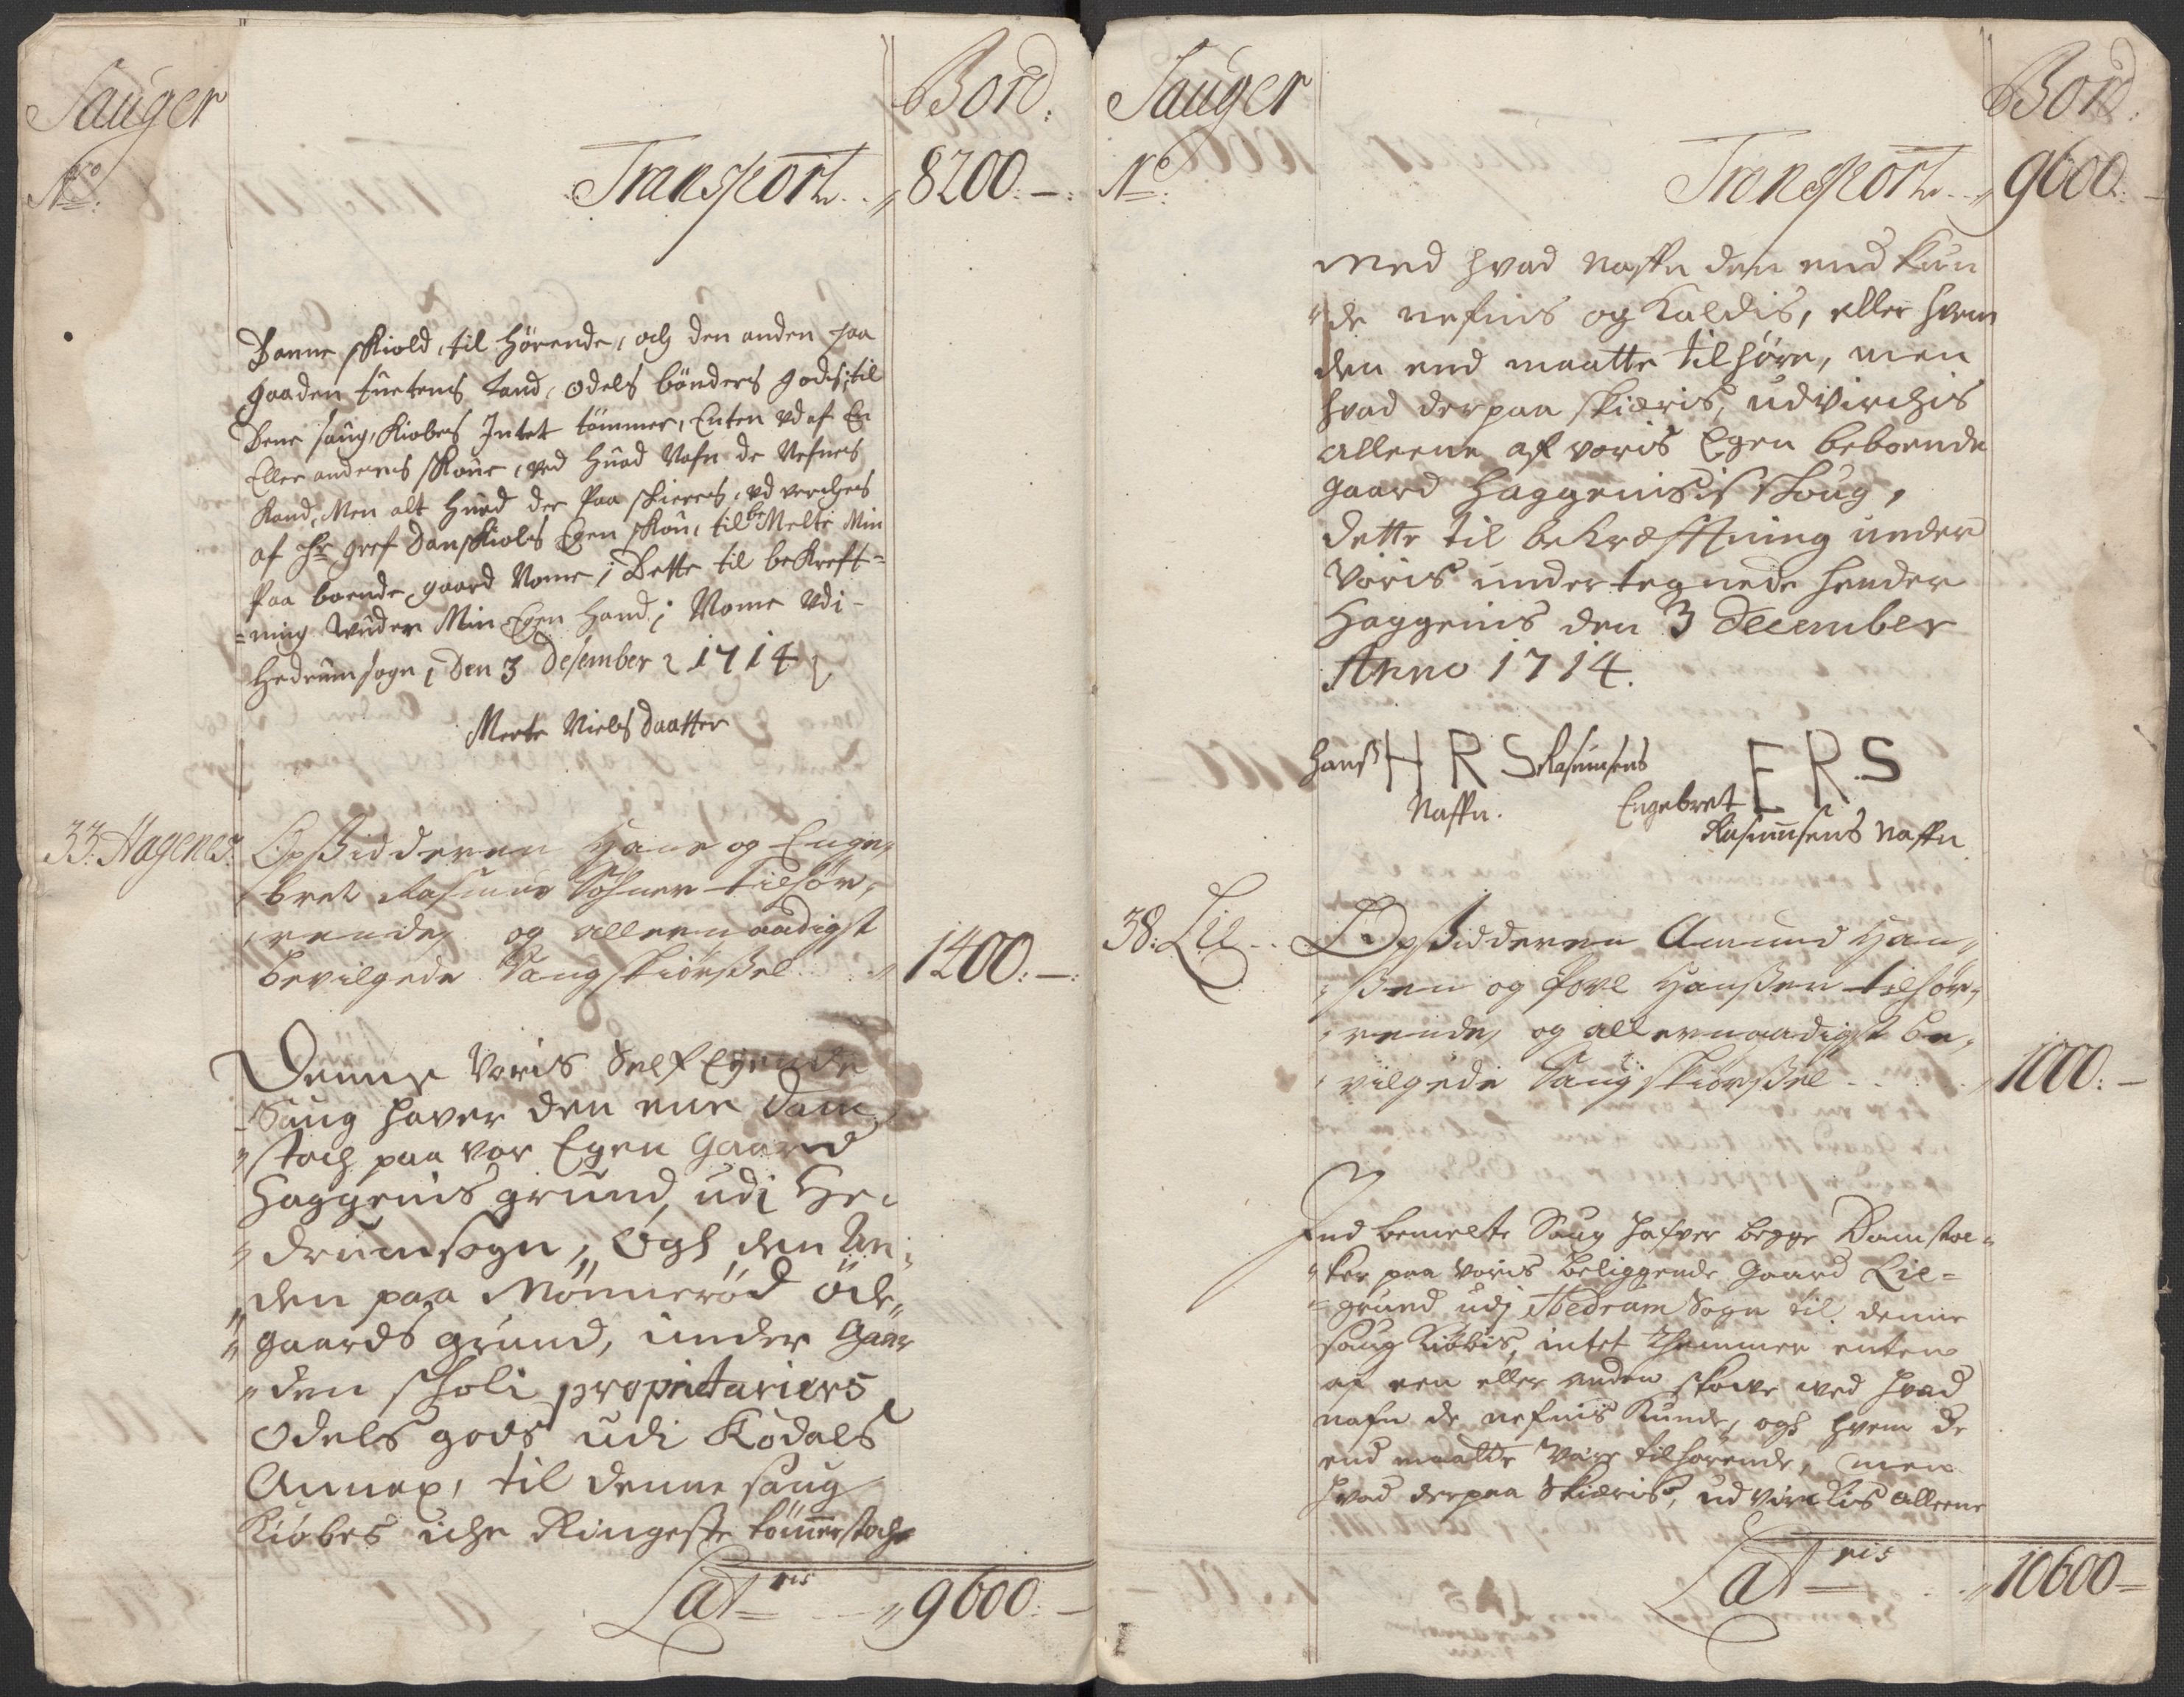 Sauger
Bord:
No:
Transport.. 8200.—:
Danne skiold, til hörende, och den anden paa
gaaden tuetens Land, odels bönders godis; til
Dene saug, kiobes Intet tömmer, Enten vd af En
Eller anders skoue, ved Huad Nafn de Nefnes
Kand, Men alt Huad der Paa skieres, vd verches
af Hr gref Danskiols Egen skou, til be Melte Min
Paa boende gaard Nome; Dette til bekreft=
=ning under Min Egen Hand; Nome vdi
Hedrum sogn; Den 3 Desember 1714
Merte Niels Daatter
33: Hagenes: Opsidderen Hans og Enge,
bret Rasmus Sönner tilhör,
rende, og allernaadigst
bevilgede Saugskiørssel .. 1400:—:
Denne voris Self Egende
Saug haver den ene Dam
stoch paa vor Egen Gaard
Haggenis grund, udi He,
drum sogn, Ogs den An,
den paa Mönneröd Öde,
gaards grund, under Gaar
den skoli proprietariers
Odels gods udi Kodals
Annex, til denne saug
Kiøbes iche Ringeste tömmerstoche
Lat=ris 9600:—
Sauger
Bord:
No:
Transport.. 9600:—
med hvad naffn den end kun
de nefnis og kaldis, eller hvem
den end maatte tilhøre, men
hvad derpaa skiæris, udvirchis
alleene af voris Egen beboende
gaard Haggenisis skoug,
dette til bekræfftning under
voris under tegnede hender
Haggenis den 3 December
Anno 1714.
Hanß H R S Rasmusens
Naffn.
Engebret E R S
Rasmusens naffn
38: Lie.. Opsidderen Amund Han,
ßen og Povl Hanßen tilhør,
rende, og allernaadigst be,
vilgede Saugskiørssel .. 1000:—
Ind bemelte Saug hafver begge Damstoc=
ker paa voris beliggende Gaard Lie=
=grund udj Hedrum Sogn til denne
saug kiøbis, intet thømmer enten
af een eller anden skowe wed hvad
nafn de nefnis kunde, ogs hvem de
end maatte være tilhørende, men
hvad derpaa skiæris, ud virckis alleene
Lat=ris 10600=